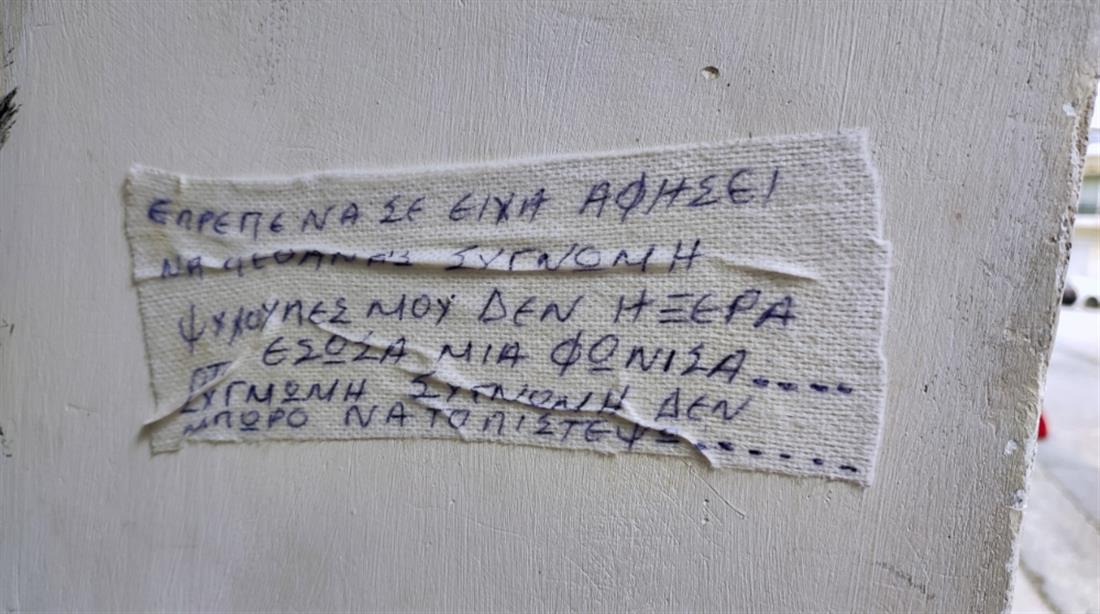 ΕΠΡΕΠΕ ΝΑ ΣΕ ΕΙΧΑ ΑΦΗΣΕΙ
ΝΑ ΠΕΘΑΝΕΙΣ ΣΥΓΝΩΜΗ
ΨΥΧΟΥΛΕΣ ΜΟΥ ΔΕΝ ΗΞΕΡΑ
ΕΣΩΣΑ ΜΙΑ ΦΩΝΙΣΑ....
ΣΥΓΜΩΝΗ ΣΥΓΝΩΜΗ ΔΕΝ
ΜΠΩΡΟ ΝΑ ΤΟ ΠΙΣΤΕΨΩ......